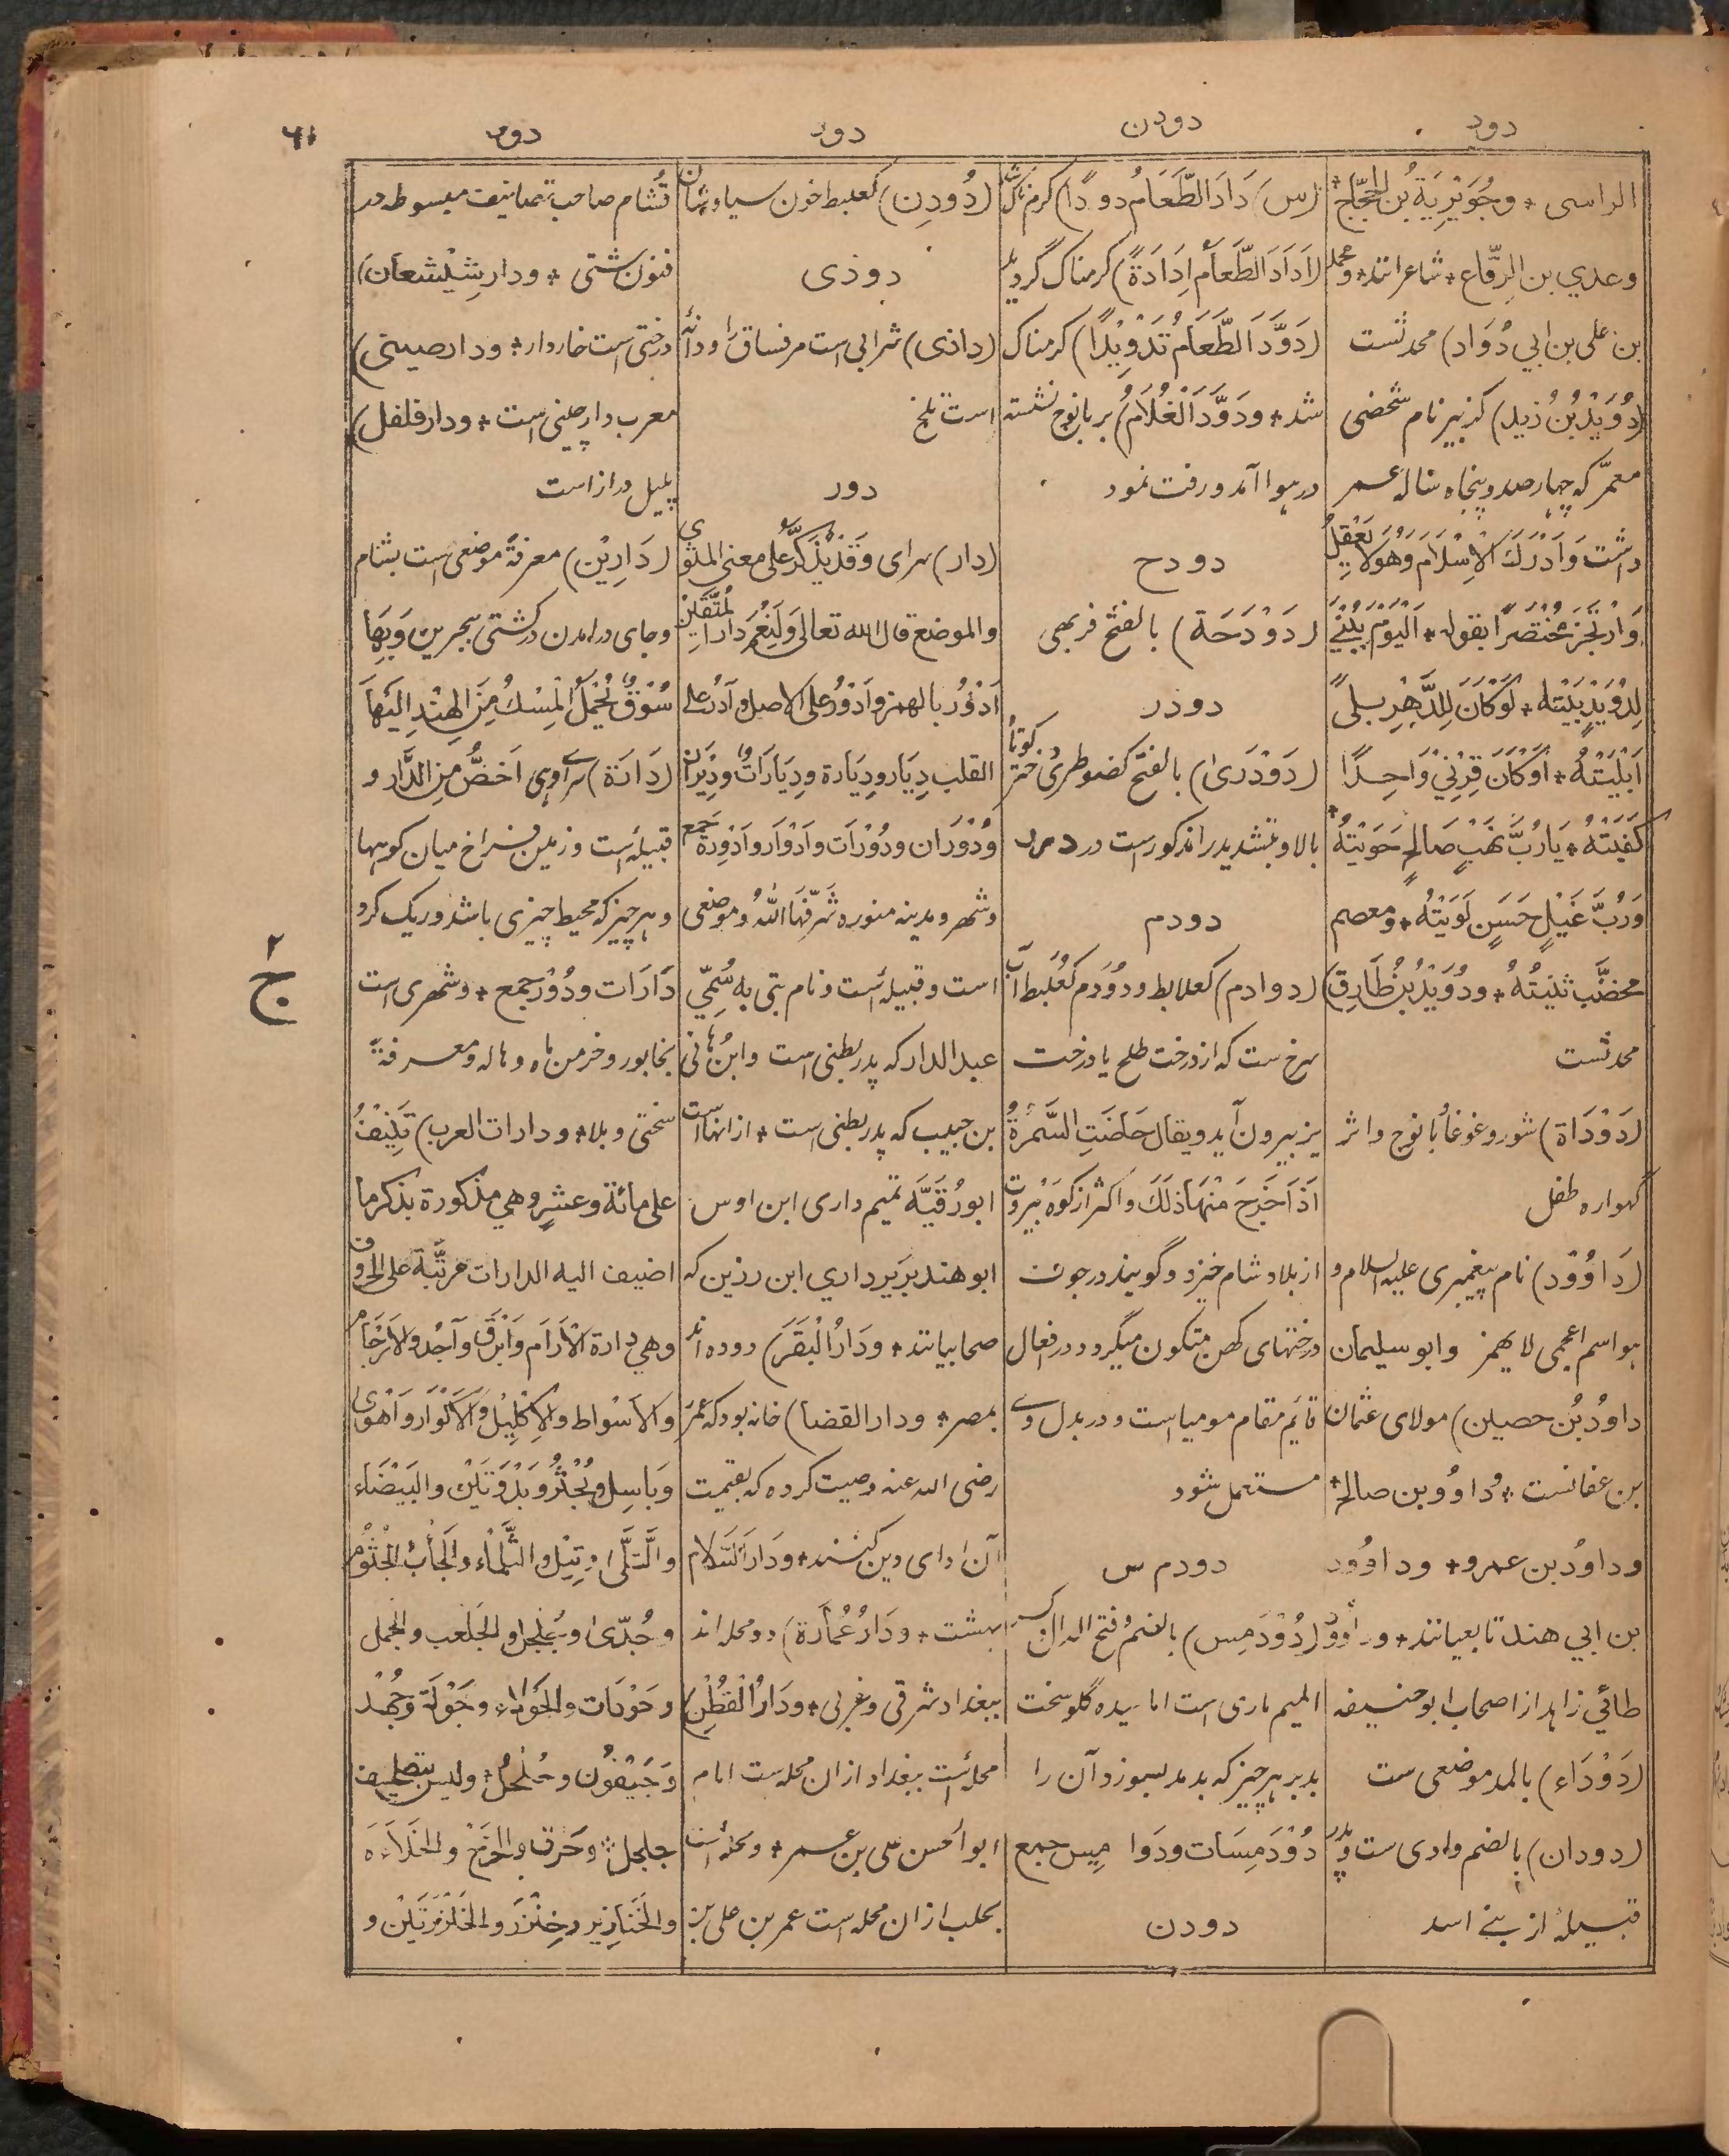 دود
دودن
دود
دور
۶۱
الراسی * وجُوَيْرِيَةُ بُن الحَجّاج *
وعدي بن الرِّقاع * شاعرانند * ومحمد
بن علی بن ابي دُوَاد) محدثست
(دُوَيْدُ بْنُ زَيد) کزبیر نام شخصی
معمّر که چهار صد و پنجاه ساله عمر
داشت وَاَدْرَكَ الْاِسْلَامَ وَهُوَ لَا يَعْقِلُ
وَارْتَجَزَ مُحْتَضَرًا بقوله * اَلْيَوْمَ يُبْنَىٰ
لِدُوَيْدٍ بَيْتُه * لَوْ كَانَ لِلدَّهْرِ بِلیً
اَبْلَيْتُهُ * اَوْ كَانَ قِرْنِيْ وَاحِدًا
كَفَيْتُهُ * يَا رُبَّ نَهْبٍ صَالِحٍ حَوَيْتُهُ *
وَرُبَّ غَيْلٍ حَسَنٍ لَوَيْتُهُ * ومعصم
مخضَّب ثنيتُهُ * ودُوَيْدُ بْنُ طَارِق)
محدثست
(دَوْدَاة) شور و غوغا و بانوج و اثر
گهواره طفل
(دَاوُوْد) نام پیغمبری علیه السلام و
هو اسم اعجمی لا یهمز وابو سلیمان
داودُ بْن حصین) مولای عثمان
بن عفانست * وداوُد بن صالح *
وداوُد بن عمرو * وداوُود
بن ابي هند تابعیانند * وداوُد
طائي زاهد از اصحاب ابو حنیفه
(دَوْدَاء) بالمد موضعی ست
(دودان) بالضم وادی ست و پدر
قبیله از بنے اسد
(س) دَادَ الطَّعَامُ دودًا) کرمناک شد
(اَدَادَ الطَّعَامُ اِدَادَةً) کرمناک گردید
(دَوَّدَ الطَّعَامُ تَدْوِيْدًا) کرمناک
شد * ودَوَّدَ الْغُلَامُ) بر بانوج نشسته
در هوا آمد و رفت نمود
دودح
(دَوْدَحَة) بالفتح فربهی
دودر
(دَوْدَرىٰ) بالفتح کضوطری دختر کوتاه
بالا و بتشدید را مذکور است در درر
دودم
(دوادم) کعلابط ودُوَدِم کعُلَبِط آب
سرخ ست که از درخت طلح یا درخت
بز بیرون آید ویقال حَاضَتِ السَّمُرَةُ
اِذَا خَرَجَ مِنْهَا ذٰلِكَ واکثر از کوه بیروت
از بلاد شام خیزد و گویند در جوف
درختهای کهن متکون میگردد و در افعال
قایم مقام مومیا است و در بدل وے
مستعمل شود
دودمس
(دُوْدَمِس) بالضم و فتح الدال و کسر
المیم ماری است اماسیده گلو سخت
بد بر هر چیز که بدمد بسوزد آن را
دُوْدَمِسَات ودَوَامِيس جمع
دودن
(دُودِن) کعلبط خون سیاوشان
دوذی
(داذی) شرابی است مر فساق را و دانۂ
است تلخ
دور
(دار) سرای وَقَدْ يُذَكَّرُ عَلٰی معنی المثوي
والموضع قال الله تعالیٰ وَلَنِعْمَ دَارُ الْمُتَّقِيْنَ
اَدْؤُر بالهمز واَدْوُر علی الاصل وآدُر علے
القلب دِيَار ودِيَارة ودِيَارَات ودِيْرَان
ودُوْرَان ودُوْرَات وَاَدْوَار واَدْوِرَة جمع
وشهر و مدینه منوره شَرَّفَهَا اللهُ و موضعی
است و قبیله است و نام بتی به سُمِّيَ
عبد الدار که پدر بطنی است وابن هانی
بن حبیب که پدر بطنی است * از انها است
ابو رُقَيَّه تمیم داری ابن اوس
ابو هند بَرِير داري ابن رزین که
صحابیانند * ودَارُ الْبَقَرِ) دو ده اند
بمصر * ودار القضا) خانه بود که عمرَ
رضی الله عنه وصیت کرده که بقیمت
آن ادای دین کنند * ودَارُ السَّلام
بهشت * ودَارُ عُمَارَة) دو محله اند
ببغداد شرقی و غربی * ودَارُ الْقُطْنِ)
محله است ببغداد از ان محله ست امام
ابو الحسن علی بن عمر * و محله است
بحلب از ان محله است عمر بن علی بن
قُشام صاحب تصانیف مبسوطه در
فنون شتی * ودار شِيْشَعان)
درختی است خاردار * ودار صینی)
معرب دارچینی است * ودار فلفل)
پلپل دراز است
(دَارِيْن) معرفةً موضعی است بشام
وجای در آمدن کشتی ببحرین وَبِهَا
سُوْقٌ يُحْمَلُ الْمِسْكُ مِنَ الْهِنْدِ اِلَيْهَا
(دَارَة) سراے وهی اَخَصُّ مِنَ الدَّار و
قبیله است و زمین فراخ میان کوهها
و هر چیز که محیط چیزی باشد و ریگ گرد
دَارَات ودُوْر جمع * وشهری است
بخابور و خرمن ماه و هاله ومعرفةً
سختی و بلا * ودارات العرب) تَنِيْفُ
علی مائة وعشرٍ وهي مذکورة بذکر ما
اضیف الیه الدارات مرتَّبَة علی الحروف
وهي دارة الْآرَام وَاَبْرَقَ وَاُجُد والاَرْجَام
والاَسْوَاط والاِكْلِيْل والاَكْوَار واَهْوٰی
وَبَاسِل وبُحْثُر وبَدْوَتَيْن والبَيْضَاء
والتُّلّٰی وتِيْل والثَّلْمَاء والجَأْب والجُثُوْم
وجُدّیٰ وجُلْجُل والجَلْعَب والجمل
وجَوْدَات والجَولاء وجَوْلَة وجُهْد
وَجَيْفُون وحُلْحُل * وليس بتصحيف
جلجل * وحَوْق والخَرْج والخَلَاءَة
والخَنَازِير وخِنْزَر والخَنْزَرَتَيْن و
۲
ج